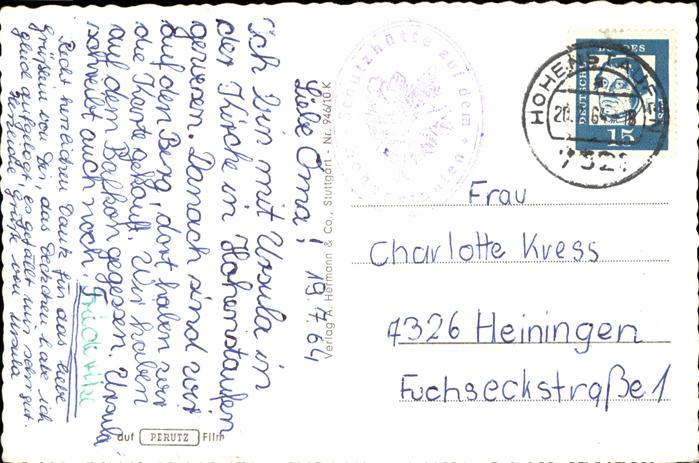 Liebe Oma! 19.7.64
Ich bin mit Ursula in
der Kirche in Hohenstaufen
gewesen. Danach sind wir
auf den Berg, dort haben wir
die Karte gekauft. Wir haben
auf dem Balkon gegessen. Ursula
schreibt auch noch. Friederike
Recht herzlichen Dank für das liebe
grüßlein von Dir, das Deckchen habe ich
gleich aufgelegt, es gefällt mir sehr gut.
Herzliche Grüße von Ursula
Verlag A. Hermann & Co., Stuttgart - Nr. 946/10 K
auf PERUTZ Film
Schutzhütte auf dem
HOHENSTAUFEN
20. 64 - 18
7321
DEUTSCHE BUNDES
15
Frau
Charlotte Kress
7326 Heiningen
Fuchseckstraße 1